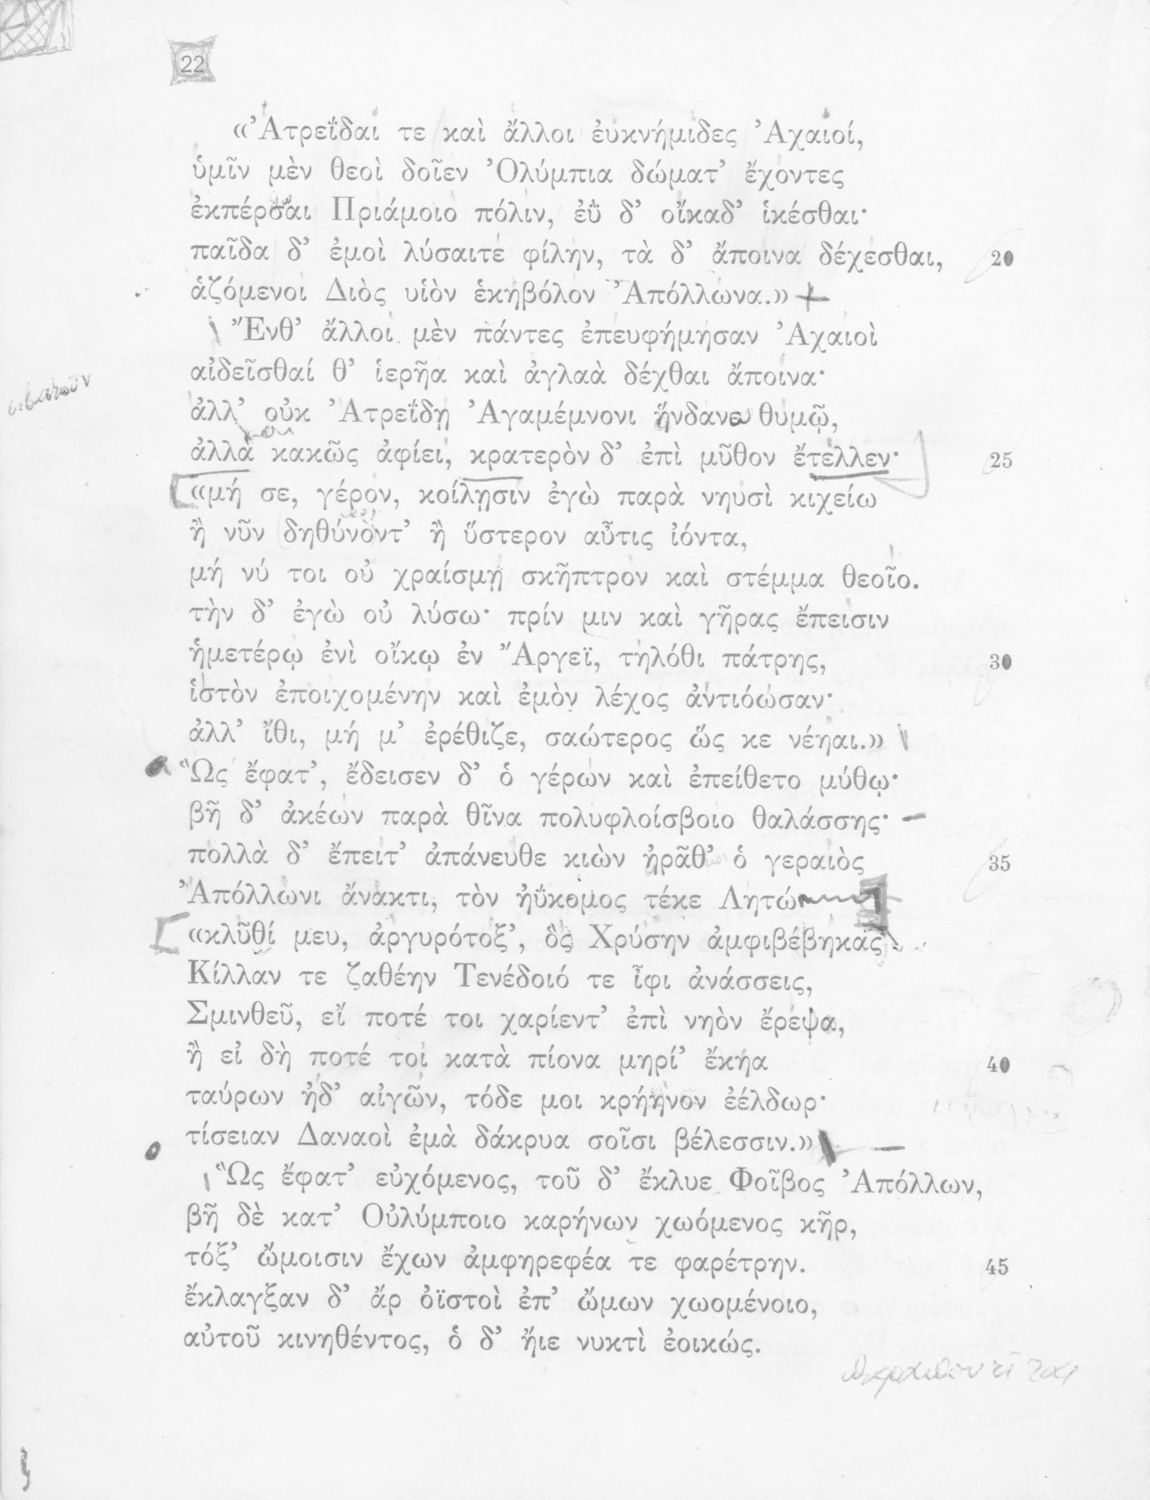 22
«Ἀτρεΐδαι τε καὶ ἄλλοι ἐυκνήμιδες Ἀχαιοί,
ὑμῖν μὲν θεοὶ δοῖεν Ὀλύμπια δώματ' ἔχοντες
ἐκπέρσαι Πριάμοιο πόλιν, ἐὺ δ' οἴκαδ' ἱκέσθαι·
παῖδα δ' ἐμοὶ λύσαιτε φίλην, τὰ δ' ἄποινα δέχεσθαι, 20
ἁζόμενοι Διὸς υἱὸν ἑκηβόλον Ἀπόλλωνα.»
Ἔνθ' ἄλλοι μὲν πάντες ἐπευφήμησαν Ἀχαιοὶ
αἰδεῖσθαί θ' ἱερῆα καὶ ἀγλαὰ δέχθαι ἄποινα·
ἀλλ' οὐκ Ἀτρεΐδῃ Ἀγαμέμνονι ἥνδανε θυμῷ,
ἀλλὰ κακῶς ἀφίει, κρατερὸν δ' ἐπὶ μῦθον ἔτελλεν· 25
«μή σε, γέρον, κοίλῃσιν ἐγὼ παρὰ νηυσὶ κιχείω
ἢ νῦν δηθύνοντ' ἢ ὕστερον αὖτις ἰόντα,
μή νύ τοι οὐ χραίσμῃ σκῆπτρον καὶ στέμμα θεοῖο.
τὴν δ' ἐγὼ οὐ λύσω· πρίν μιν καὶ γῆρας ἔπεισιν
ἡμετέρῳ ἐνὶ οἴκῳ ἐν Ἄργεϊ, τηλόθι πάτρης, 30
ἱστὸν ἐποιχομένην καὶ ἐμὸν λέχος ἀντιόωσαν·
ἀλλ' ἴθι, μή μ' ἐρέθιζε, σαώτερος ὥς κε νέηαι.»
Ὣς ἔφατ', ἔδεισεν δ' ὁ γέρων καὶ ἐπείθετο μύθῳ·
βῆ δ' ἀκέων παρὰ θῖνα πολυφλοίσβοιο θαλάσσης·
πολλὰ δ' ἔπειτ' ἀπάνευθε κιὼν ἠρᾶθ' ὁ γεραιὸς 35
Ἀπόλλωνι ἄνακτι, τὸν ἠΰκομος τέκε Λητώ
«κλῦθί μευ, ἀργυρότοξ', ὃς Χρύσην ἀμφιβέβηκας
Κίλλαν τε ζαθέην Τενέδοιό τε ἶφι ἀνάσσεις,
Σμινθεῦ, εἴ ποτέ τοι χαρίεντ' ἐπὶ νηὸν ἔρεψα,
ἢ εἰ δὴ ποτέ τοι κατὰ πίονα μηρί' ἔκηα 40
ταύρων ἠδ' αἰγῶν, τόδε μοι κρήηνον ἐέλδωρ·
τίσειαν Δαναοὶ ἐμὰ δάκρυα σοῖσι βέλεσσιν.»
Ὣς ἔφατ' εὐχόμενος, τοῦ δ' ἔκλυε Φοῖβος Ἀπόλλων,
βῆ δὲ κατ' Οὐλύμποιο καρήνων χωόμενος κῆρ,
τόξ' ὤμοισιν ἔχων ἀμφηρεφέα τε φαρέτρην. 45
ἔκλαγξαν δ' ἄρ ὀϊστοὶ ἐπ' ὤμων χωομένοιο,
αὐτοῦ κινηθέντος, ὁ δ' ἤιε νυκτὶ ἐοικώς.